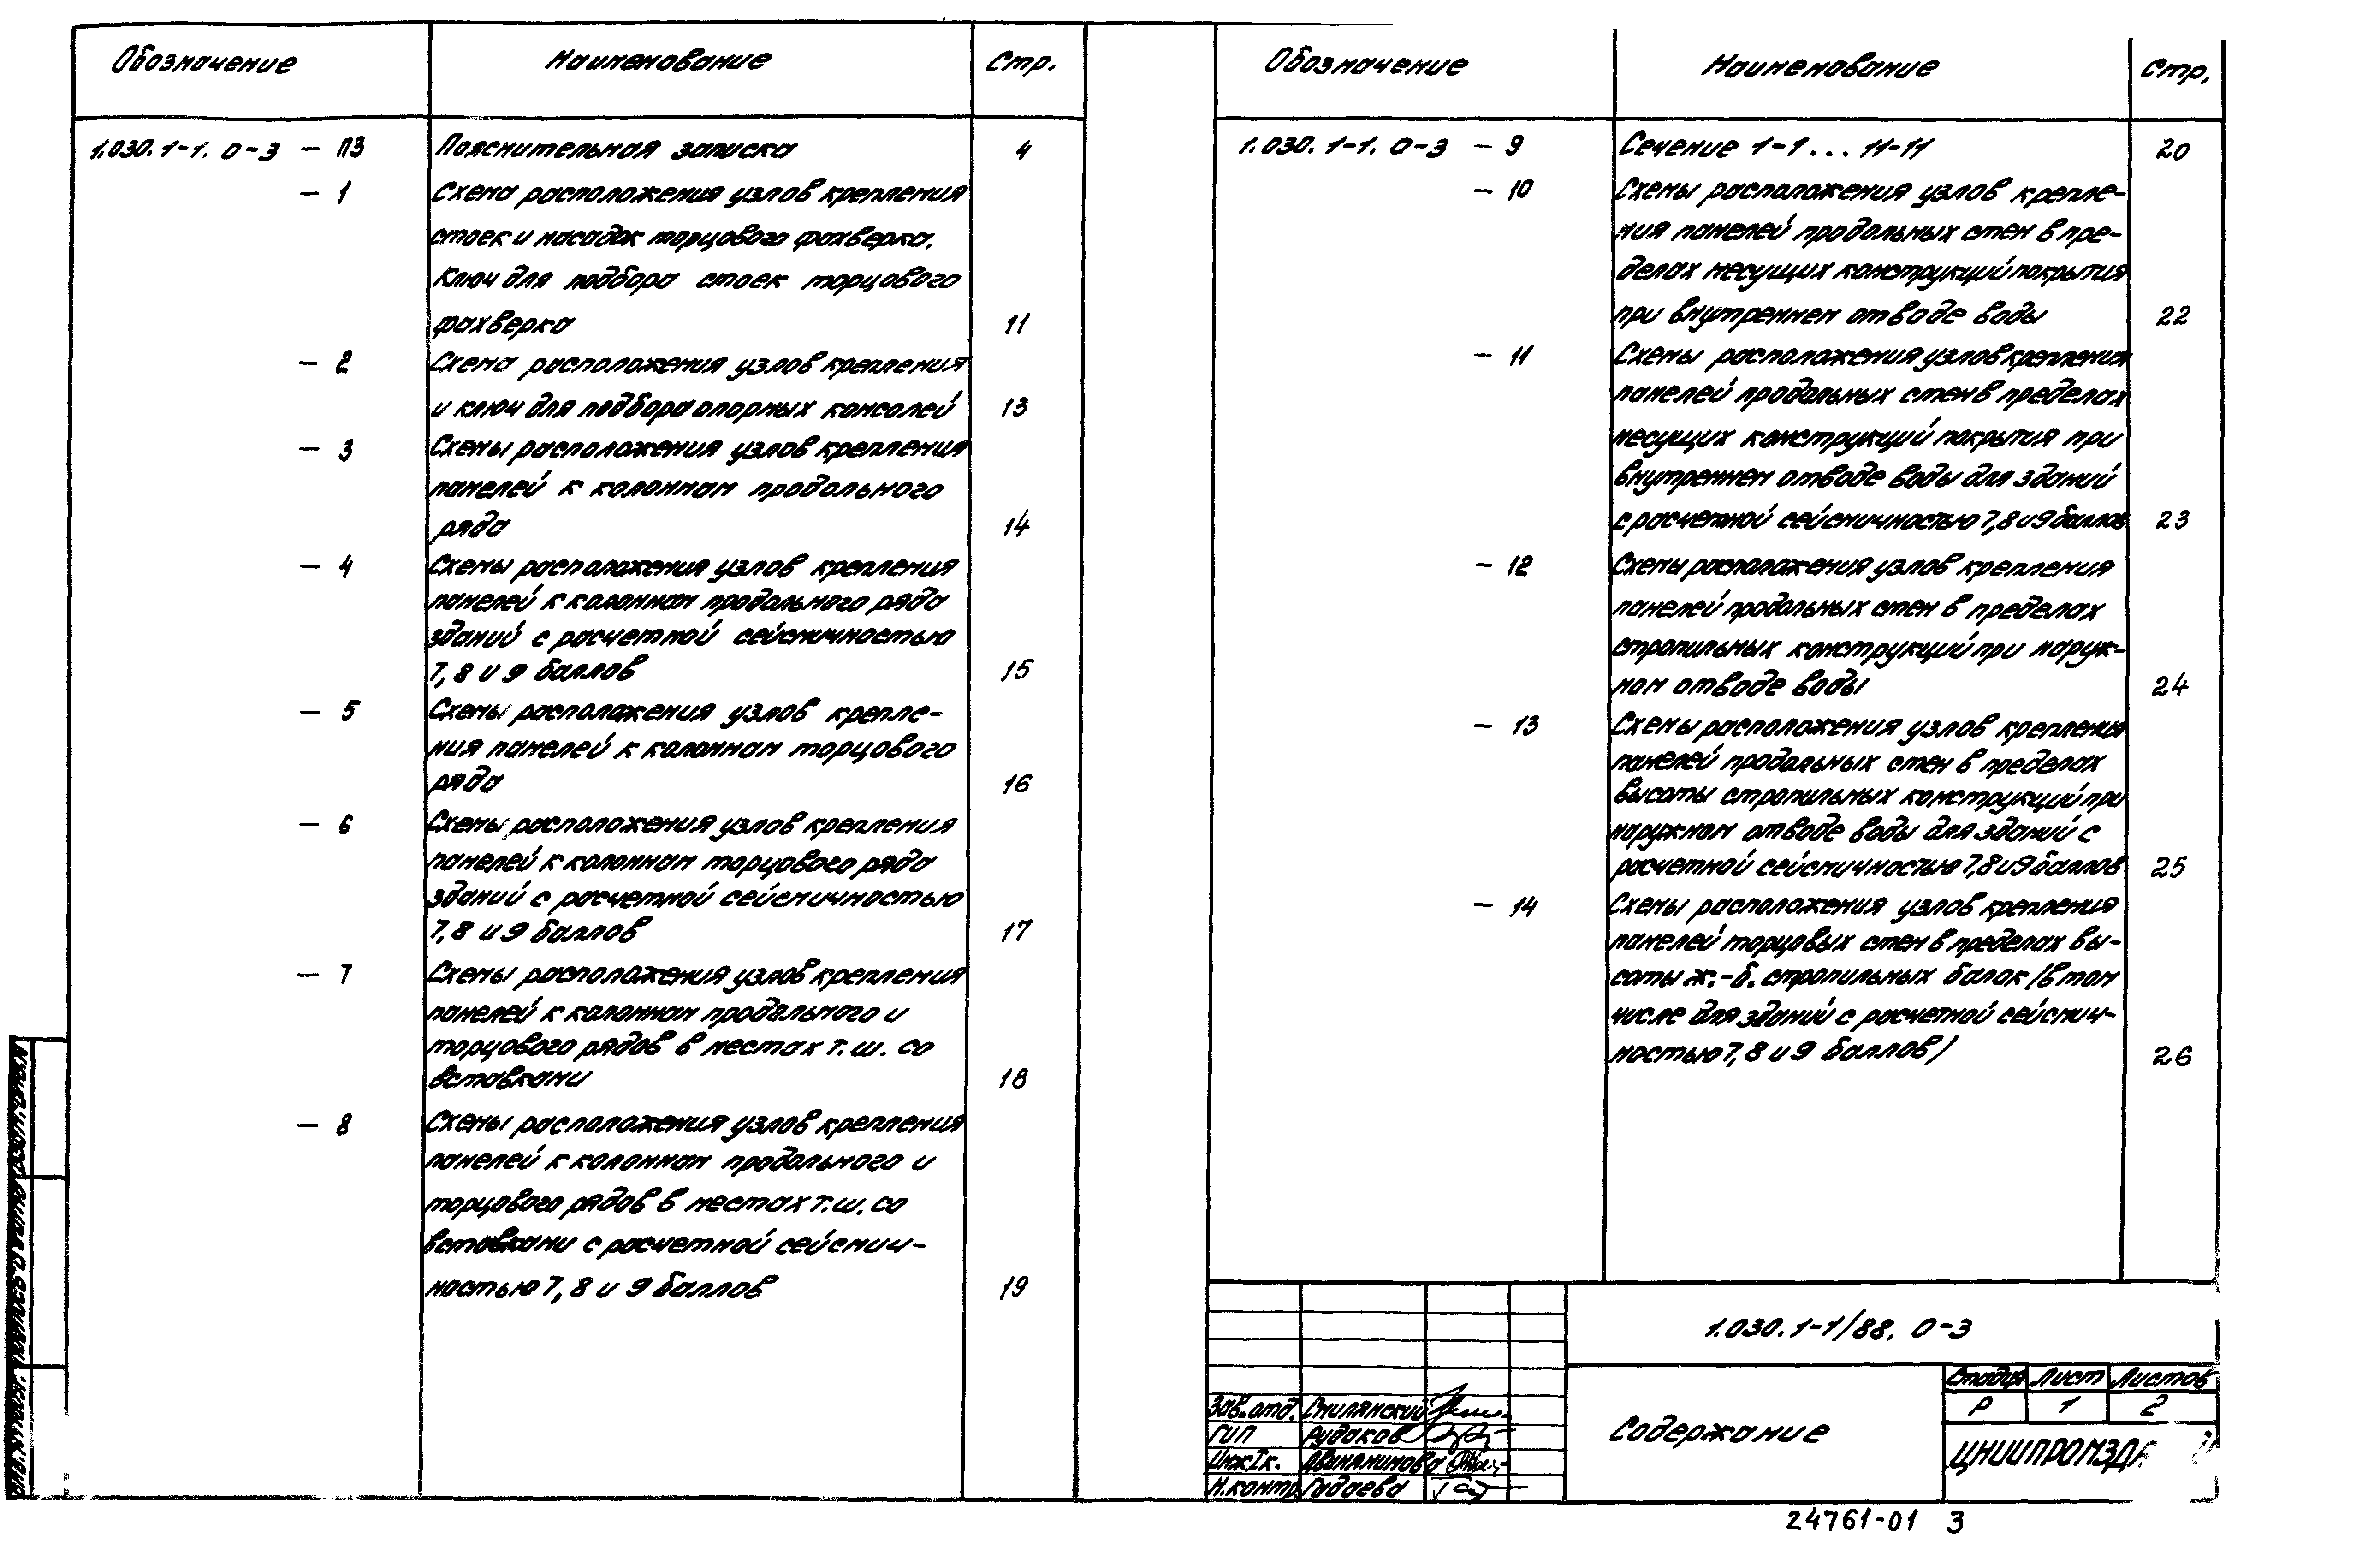 Обозначение Наименование Стр.
1.030.1-1. 0-3 - ПЗ Пояснительная записка 4
- 1 Схема расположения узлов крепления
стоек и насадок торцового фахверка.
Ключ для подбора стоек торцового
фахверка 11
- 2 Схема расположения узлов крепления
и ключ для подбора опорных консолей 13
- 3 Схемы расположения узлов крепления
панелей к колоннам продольного
ряда 14
- 4 Схемы расположения узлов крепления
панелей к колоннам продольного ряда
зданий с расчетной сейсмичностью
7, 8 и 9 баллов 15
- 5 Схемы расположения узлов крепле-
ния панелей к колоннам торцового
ряда 16
- 6 Схемы расположения узлов крепления
панелей к колоннам торцового ряда
зданий с расчетной сейсмичностью
7, 8 и 9 баллов 17
- 7 Схемы расположения узлов крепления
панелей к колоннам продольного и
торцового рядов в местах т.ш. со
вставками 18
- 8 Схемы расположения узлов крепления
панелей к колоннам продольного и
торцового рядов в местах т.ш. со
вставками с расчетной сейсмич-
ностью 7, 8 и 9 баллов 19
Обозначение Наименование Стр.
1.030.1-1. 0-3 - 9 Сечение 1-1 ... 11-11 20
- 10 Схемы расположения узлов крепле-
ния панелей продольных стен в пре-
делах несущих конструкций покрытия
при внутреннем отводе воды 22
- 11 Схемы расположения узлов крепления
панелей продольных стен в пределах
несущих конструкций покрытия при
внутреннем отводе воды для зданий
с расчетной сейсмичностью 7, 8 и 9 баллов 23
- 12 Схемы расположения узлов крепления
панелей продольных стен в пределах
стропильных конструкций при наруж-
ном отводе воды 24
- 13 Схемы расположения узлов крепления
панелей продольных стен в пределах
высоты стропильных конструкций при
наружном отводе воды для зданий с
расчетной сейсмичностью 7, 8 и 9 баллов 25
- 14 Схемы расположения узлов крепления
панелей торцовых стен в пределах вы-
соты ж.-б. стропильных балок /в том
числе для зданий с расчетной сейсмич-
ностью 7, 8 и 9 баллов/ 26
1.030.1-1/88. 0-3
Зав. отд. Смилянский
ГИП Рудаков
Инж.I к. Двинянинова
Н.контр. Гадаева
Содержание
Стадия Лист Листов
Р 1 2
24761-01 3